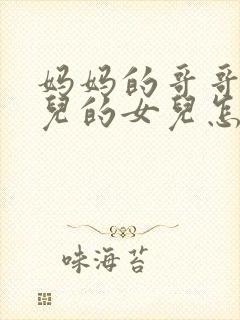 妈妈的哥哥
兒的女兒怎
味海苔